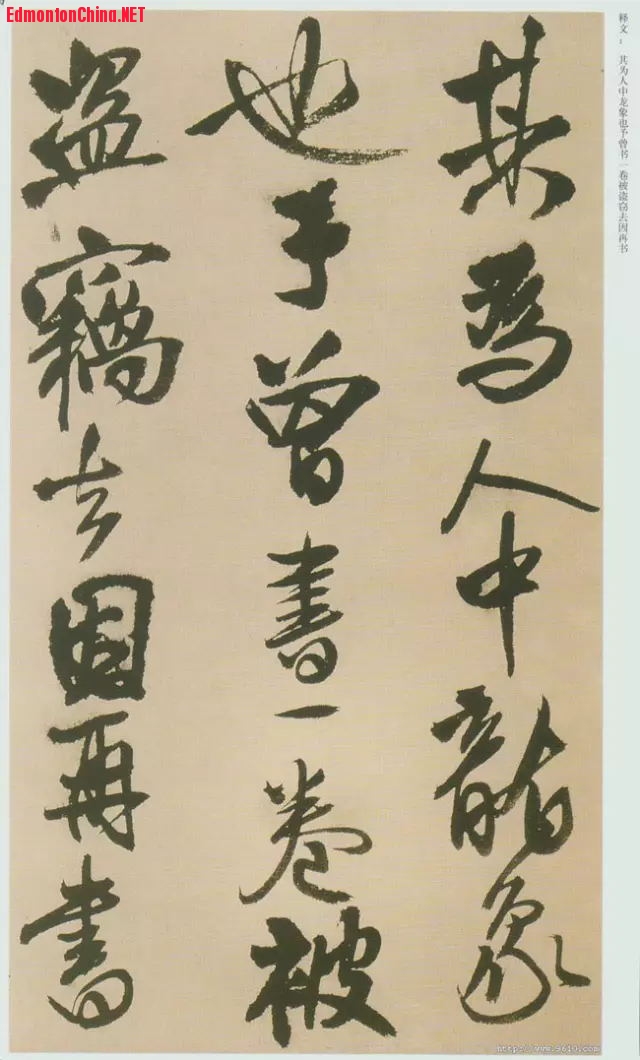 EdmontonChina.NET
释文： 其为人中龙象也予曾书一卷被盗窃去因再书
其為人中龍象
也予曾書一卷被
盜竊去因再書
http://www.9610.com